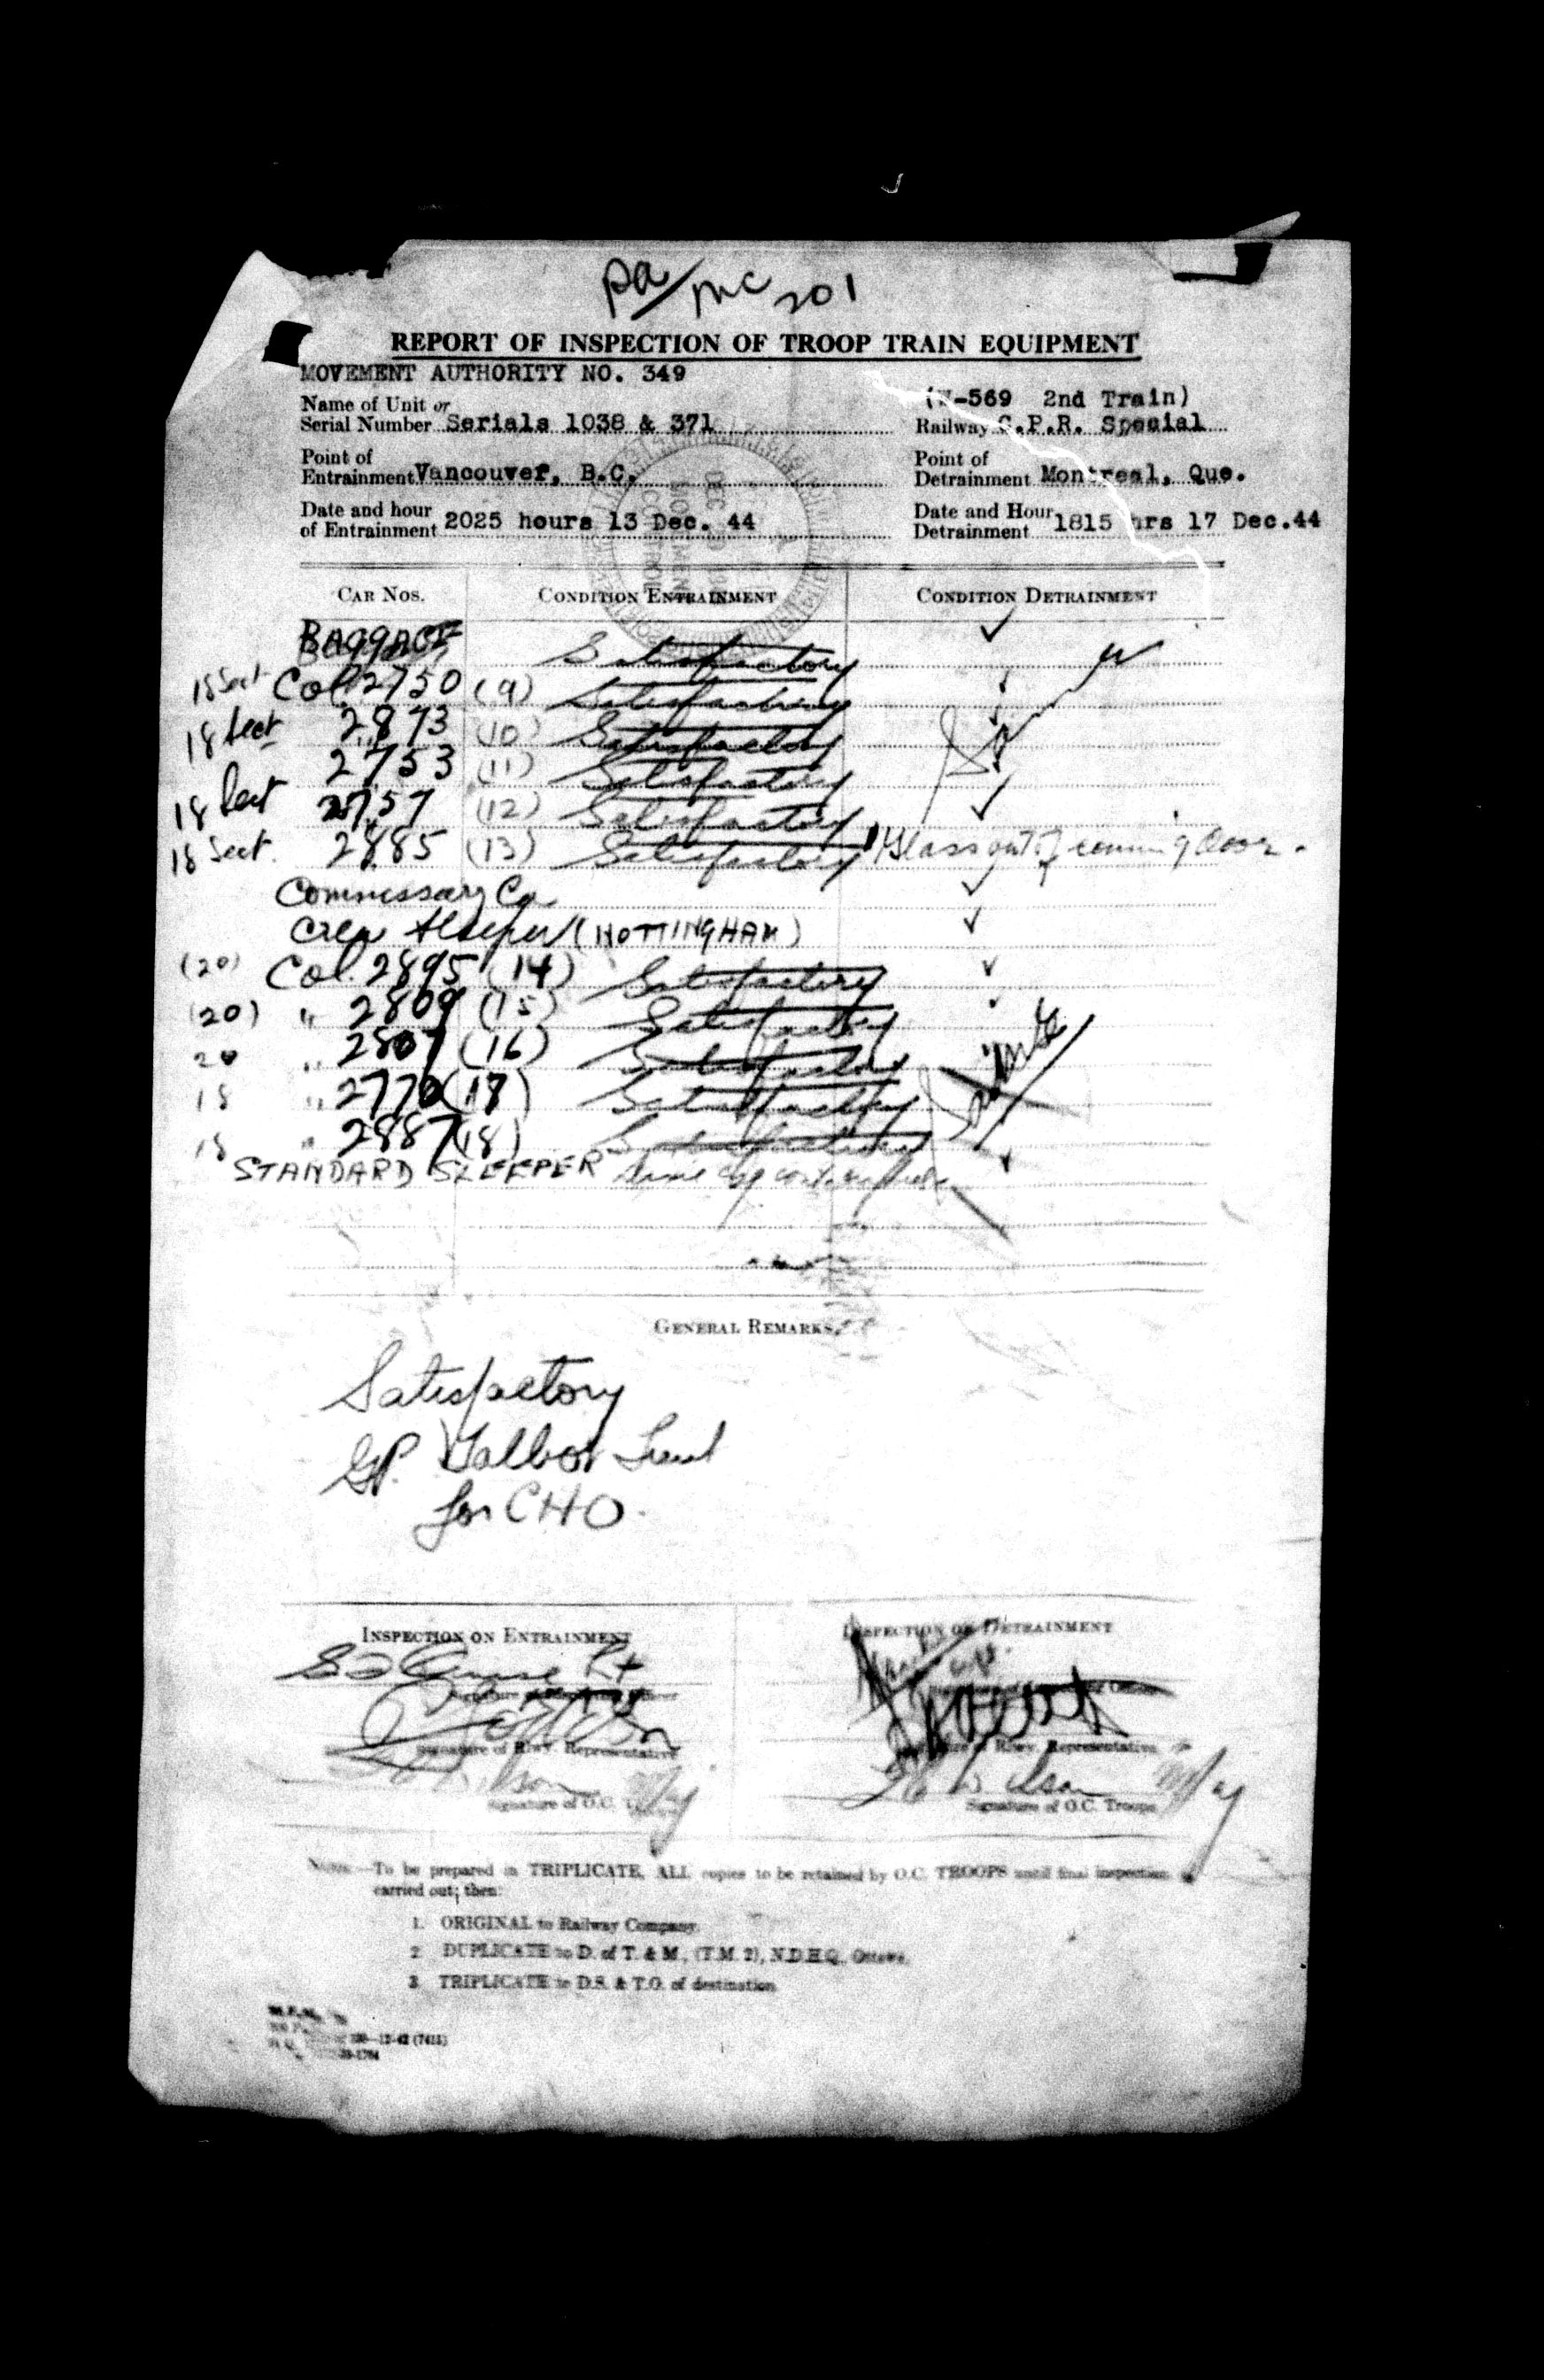 pa/mc 201
REPORT OF INSPECTION OF TROOP TRAIN EQUIPMENT
MOVEMENT AUTHORITY NO. 349
(W-569 2nd Train)
Name of Unit or
Serial Number Serials 1038 & 371
Railway C.P.R. Special
Point of
Entrainment Vancouver, B.C.
Point of
Detrainment Montreal, Que.
Date and hour
of Entrainment 2025 hours 13 Dec. 44
Date and Hour
Detrainment 1815 hrs 17 Dec.44
DEC
MOVEMENT
CONTROL
CAR NOS. CONDITION ENTRAINMENT CONDITION DETRAINMENT
BAGGAGE Satisfactory ✓
18 Sect Col. 2750 (9) Satisfactory
18 Sect 2873 (10) Satisfactory
2753 (11) Satisfactory
18 Sect 2757 (12) Satisfactory ✓
18 Sect. 2885 (13) Satisfactory 1 Glass out of door.
Commissary Ca ✓
Crew Sleeper (NOTTINGHAM) ✓
(20) Col. 2895 (14) Satisfactory ✓
(20) " 2809 (15) Satisfactory
20 " 2807 (16) Satisfactory
18 " 2770 (17) Satisfactory
18 " 2887 (18) Satisfactory
STANDARD SLEEPER
GENERAL REMARKS.
Satisfactory
G.P. Talbot Lieut
for CHO.
INSPECTION ON ENTRAINMENT
INSPECTION ON DETRAINMENT
Signature of Rlwy. Representative
Signature of Rlwy. Representative
Wilson Maj
Signature of O.C. Troops
Wilson Maj
Signature of O.C. Troops
NOTE—To be prepared in TRIPLICATE, ALL copies to be retained by O.C. TROOPS until final inspection
carried out; then:
1. ORIGINAL to Railway Company.
2. DUPLICATE to D. of T. & M., (T.M. 2), N.D.H.Q., Ottawa.
3. TRIPLICATE to D.S. & T.O. of destination